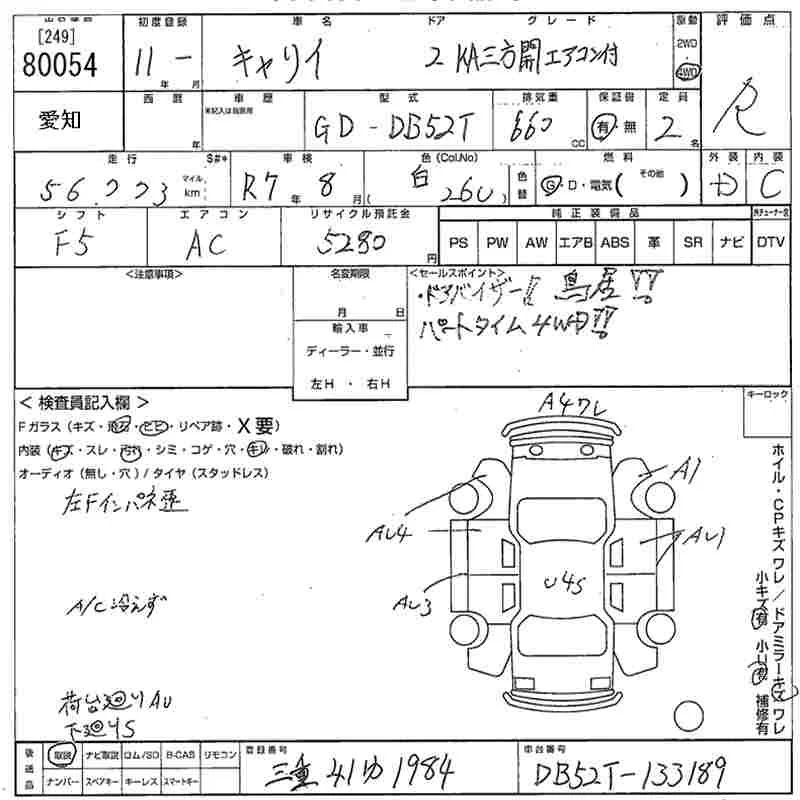 [249]
80054
初度登録
11 ー
年 月
車名
キャリイ
ドア
2
グレード
KA三方開エアコン付
駆動
2WD
4WD
評価点
R
愛知
西暦
年
車歴
未記入は自家用
型式
GD-DB52T
排気量
660
CC
保証書
有・無
定員
2
名
走行
56,003
マイル
km
S#*
車検
R7年8月
色(Col.No)
白
26U
色替
燃料
G・D・電気( その他 )
外装
D
内装
C
シフト
F5
エアコン
AC
リサイクル預託金
5280
円
純正装備品
PS PW AW エアB ABS 革 SR ナビ DTV
<注意事項>
名変期限
月 日
輸入車
ディーラー・並行
左H ・ 右H
<セールスポイント>
・ドアバイザー!! 鳥居!!
パートタイム4WD!!
< 検査員記入欄 >
Fガラス(キズ・飛石・ヒビ・リペア跡・X要)
内装(キズ・スレ・汚れ・シミ・コゲ・穴・キレ・破れ・割れ)
オーディオ(無し・穴)/タイヤ(スタッドレス)
左Fインパネ歪
A/C冷えず
荷台廻りAU
下廻りS
キーロック
A4ワレ
A1
AU4
AU1
AU3
U4S
ホイル・CPキズ ワレ/ドアミラーキズ ワレ
小キズ有 小U有 補修有
後送品
取説 ナビ取説 ロム/SD B-CAS リモコン
ナンバー スペアキー キーレス スマートキー
登録番号
三重41ゆ1984
車台番号
DB52T-133189